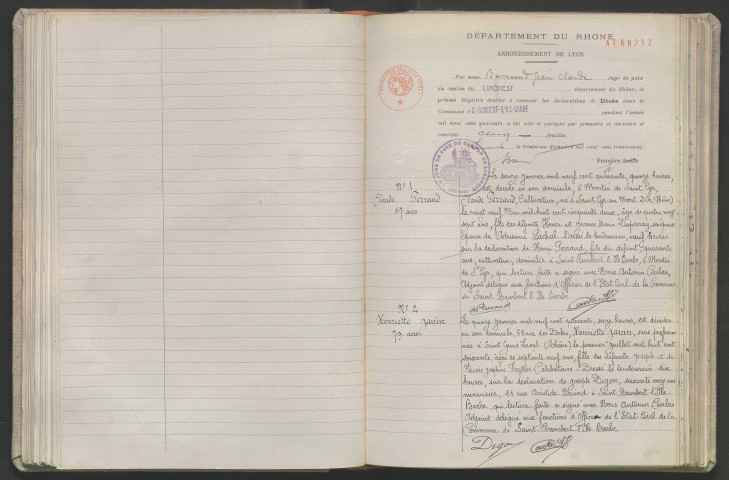 DÉPARTEMENT DU RHONE
AT69212
ARRONDISSEMENT DE LYON
Par nous, Jean Claude juge de paix
du canton de LIMONEST département du Rhône, le
présent Registre destiné à recevoir les déclarations de Décès dans la
Commune d pendant l'année
mil neuf cent quarante, a été coté et paraphé par première et dernière et
contient cinq feuilles.
le trente-un décembre mil neuf cent trente-neuf.
Premier feuillet
N° 1
Claude Perraud
87 ans
Le douze janvier mil neuf cent quarante, quinze heures,
est décédé en son domicile, 6 Montée de Saint Cyr,
Claude Perraud, Cultivateur, né à Saint Cyr au Mont d'Or (Rhône)
le vingt neuf Mai mil huit cent cinquante deux, âgé de quatre vingt
sept ans, fils des défunts Henri et Jeanne Marie
Epoux de Dressé le lendemain, neuf heures
sur la déclaration de Henri Perraud, fils du défunt, quarante
ans, cultivateur, domicilié à Saint Rambert l'Ile Barbe, 6 Montée
de St Cyr, qui lecture faite a signé avec Nous Antonin Coutas,
Adjoint délégué aux fonctions d'Officier de l'Etat Civil de la Commune
de Saint Rambert l'Ile Barbe
N° 2
Henriette Janvier
79 ans
Le quinze janvier mil neuf cent quarante, seize heures, est décédée
en son domicile, Henriette Janvier, sans profession
née à Saint Genis Laval (Rhône) le premier juillet mil huit cent
soixante, âgée de septante neuf ans, fille des défunts Joseph et de
Célibataire. Dressé le lendemain dix
heures, sur la déclaration de Joseph Digon, soixante onze ans
21 rue Aristide Briand à Saint Rambert l'Ile
Barbe, qui lecture faite a signé avec Nous Antonin Coutas
Adjoint délégué aux fonctions d'Officier de l'Etat Civil de la
Commune de Saint Rambert l'Ile Barbe
Digon